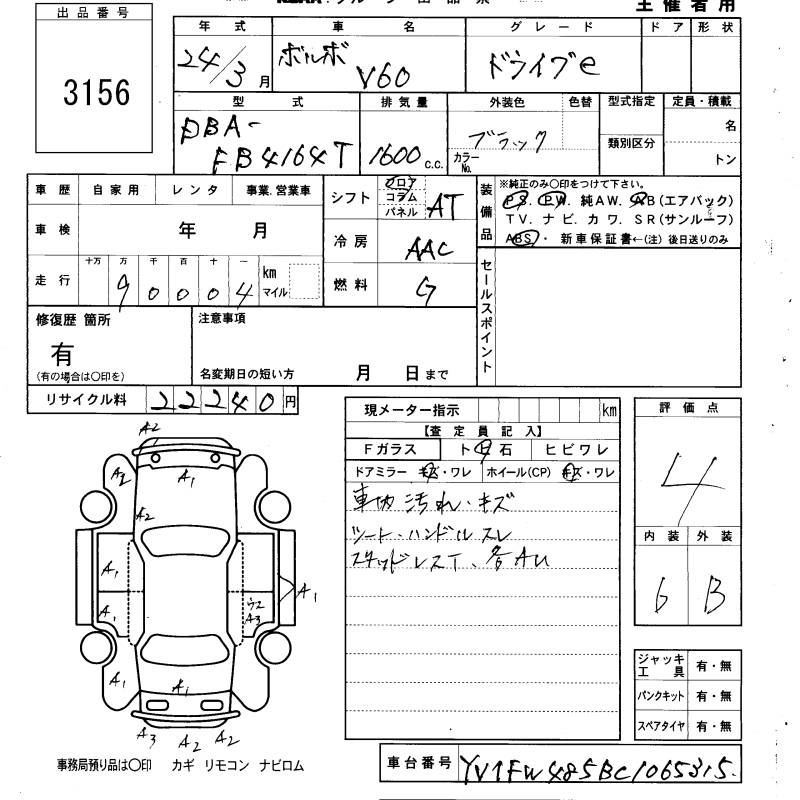 出品番号
3156
主催者用
年式 車名 グレード ドア 形状
24/3月 ボルボ V60 ドライブe
型式 排気量 外装色 色替 型式指定 定員・積載
DBA-
FB4164T 1600 c.c. ブラック カラーNo. 類別区分 名
トン
車歴 自家用 レンタ 事業.営業車
車検 年 月
走行 十万 万 千 百 十 一 km マイル
90004
シフト フロア コラム パネル AT
冷房 AAC
燃料 G
装備品 ※純正のみ○印をつけて下さい。
PS. PW. 純AW. AB(エアバック)
TV. ナビ. カワ. SR(サンルーフ)
ABS. 新車保証書←(注)後日送りのみ
セールスポイント
修復歴 箇所
有
(有の場合は○印を)
注意事項
名変期日の短い方 月 日まで
リサイクル料 22240円
現メーター指示 km
【査定員記入】
Fガラス ト石 ヒビワレ
ドアミラー キズ・ワレ ホイール(CP) キズ・ワレ
車内汚れ・キズ
シート・ハンドルスレ
スタッドレスT、各AU
評価点
4
内装 外装
6 B
A2
A2 A1
A2
A1
A1 ウ2 A3 A1
A1 A1
A3 A2 A2
ジャッキ工具 有・無
パンクキット 有・無
スペアタイヤ 有・無
事務局預り品は○印 カギ リモコン ナビロム
車台番号 YV1FW485BC1065315.